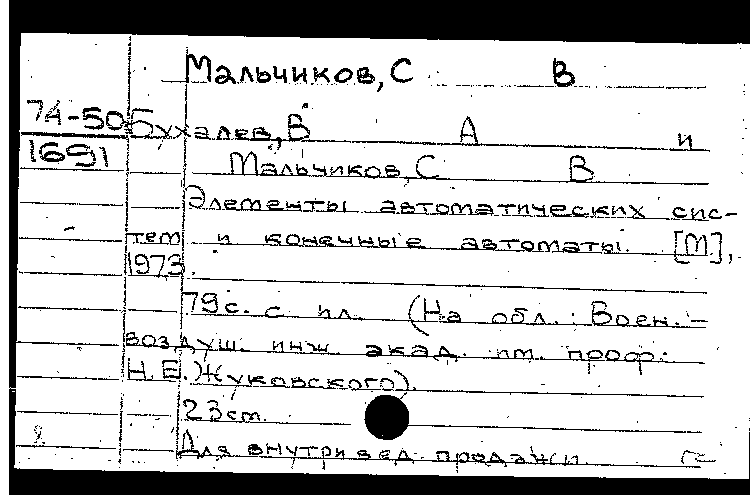 Мальчиков, С В
74-50
1691
Бухалев, В А и
Мальчиков, С В
Элементы автоматических сис-
тем и конечные автоматы. [М],
1973.
79 с. с ил. (На обл.: Воен.-
воздуш. инж. акад. им. проф.
Н.Е. Жуковского).
23 см.
Для внутривед. продажи